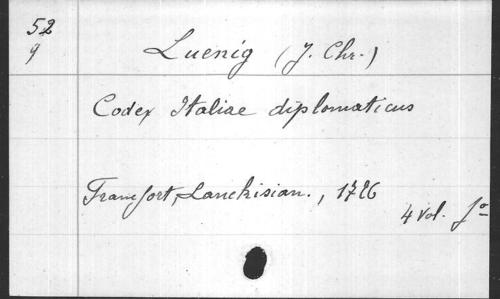 52
9
Luenig (J. Chr.)
Codex Italiae diplomaticus
Francfort, Lanckisian., 1726
4 vol. fo